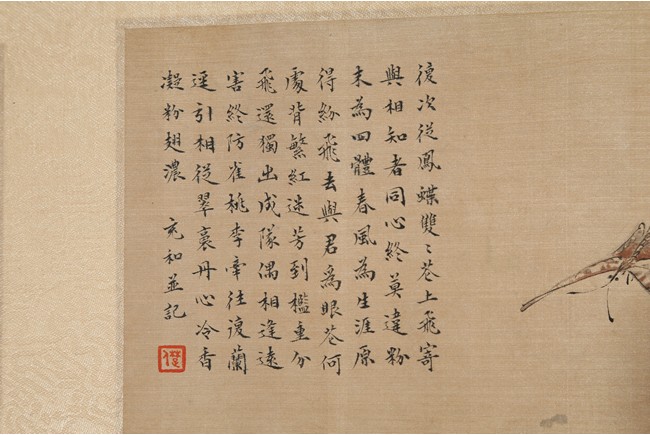 復次從鳳蝶雙〻花上飛寄
與相知者同心終莫違粉
末為四體春風為生涯原
得紛飛去與君為眼花何
處背繁紅迷芳到檻重分
飛還獨出成隊偶相逢遠
害終防雀桃李牽往復蘭
逕引相從翠裛丹心冷香
凝粉翅濃 充和並記